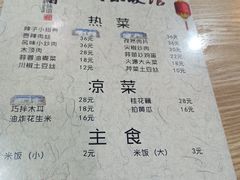 热菜
辣子小指卷 36元
香辣肉丝 36元
风味小炒肉 36元
木须肉 28元
蒜蓉油麦菜 18元
川椒土豆丝 16元
孜然肉片 36元
尖椒炒肉 36元
蒜苗炒鸡蛋
火爆大头菜 18元
芹菜土豆丝 16元
凉菜
巧拌木耳 28元
油炸花生米 16元
桂花藕 28元
拍黄瓜 16元
主食
米饭（小） 2元
米饭（大） 3元